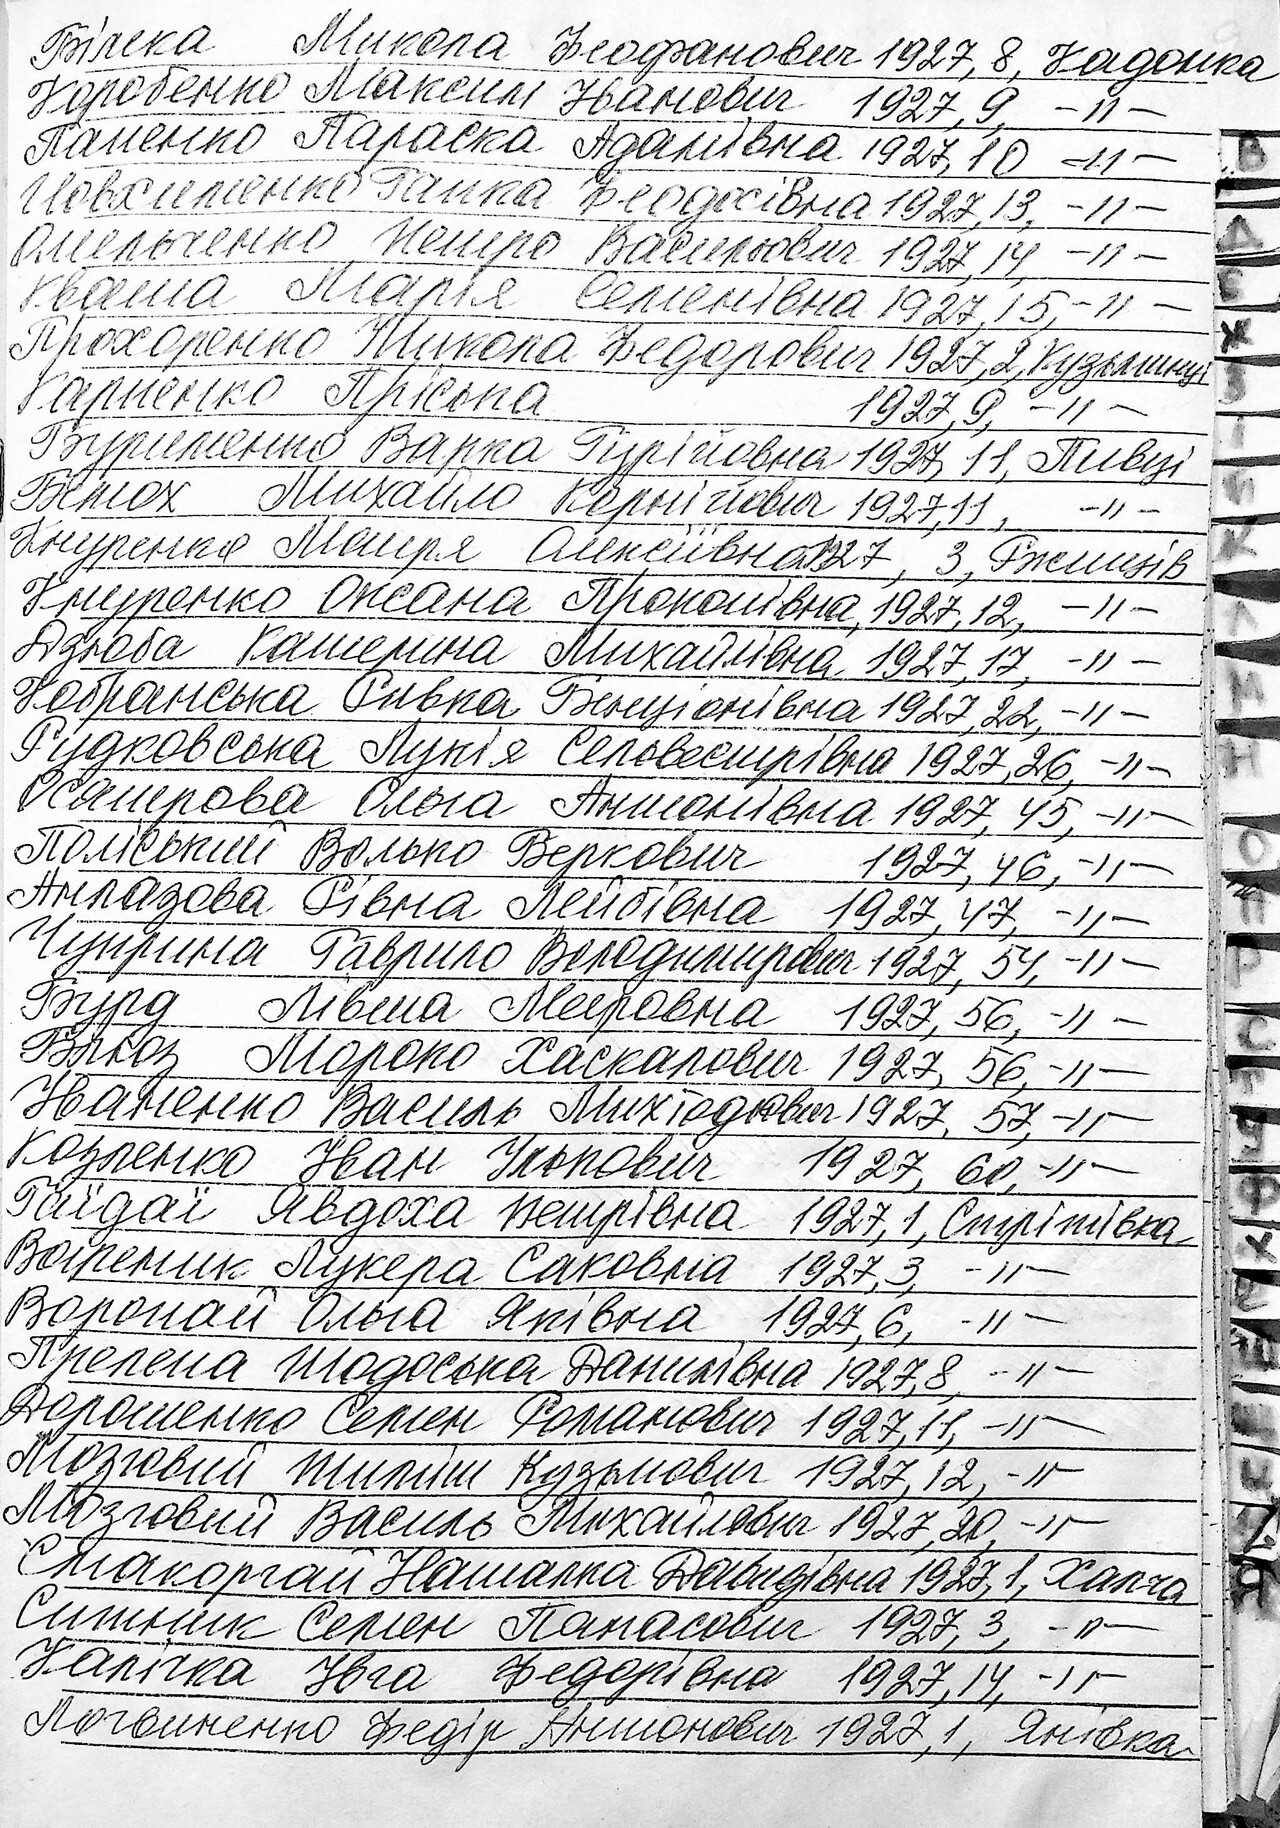 Білека Микола Феофанович 1927, 8, Кадомка
Коробенко Максим Іванович 1927, 9, -"-
Паненко Параска Адамівна 1927, 10 -"-
Йовхименко Ганка Феодосівна 1927, 13, -"-
Омельченко Петро Васильович 1927, 14, -"-
Кваша Марія Семенівна 1927, 15, -"-
Прохоренко Микола Федорович 1927, 2, Кузьминці
Карпенко Пріська 1927, 9, -"-
Бурименко Варка Гурійовна 1927, 11, Пивці
Бетох Михайло Корнійович 1927, 11, -"-
Кнуренко Марія Олексіївна 1927, 3, Ржищів
Кнуренко Оксана Прокопівна, 1927, 12, -"-
Дзюба Катерина Михайлівна 1927, 17, -"-
Кобранська Ривка Бенціонівна 1927, 22, -"-
Рудковська Лукія Селовестрівна 1927, 26, -"-
Осатрова Ольга Антонівна 1927, 45, -"-
Поліський Волько Беркович 1927, 46, -"-
Алмазова Рівна Лейбівна 1927, 47, -"-
Чуприна Гаврило Володимирович 1927, 54, -"-
Бурд Лівша Мееровна 1927, 56, -"-
Блюз Мороко Хаскалович 1927, 56, -"-
Іваненко Василь Михтодович 1927, 57, -"-
Козленко Іван Улькович 1927, 60, -"-
Гайдай Явдоха Петрівна 1927, 1, Стрітівка
Вареник Лукера Саковна 1927, 3, -"-
Воропай Ольга Яківна 1927, 6, -"-
Прелепа Тодоська Данилівна 1927, 8, -"-
Дорошенко Семен Романович 1927, 11, -"-
Мозговий Тиміш Кузьмович 1927, 12, -"-
Мозговий Василь Михайлович 1927, 20, -"-
Наталка Давидівна 1927, 1, Халча
Ситник Семен Панасович 1927, 3, -"-
Капічка Івга Федорівна 1927, 14, -"-
Логвиненко Федір Антонович 1927, 1, Янівка
В
Д
Е
Ж
З
І
Й
К
Л
М
Н
О
П
Р
С
Т
У
Ф
Х
Я